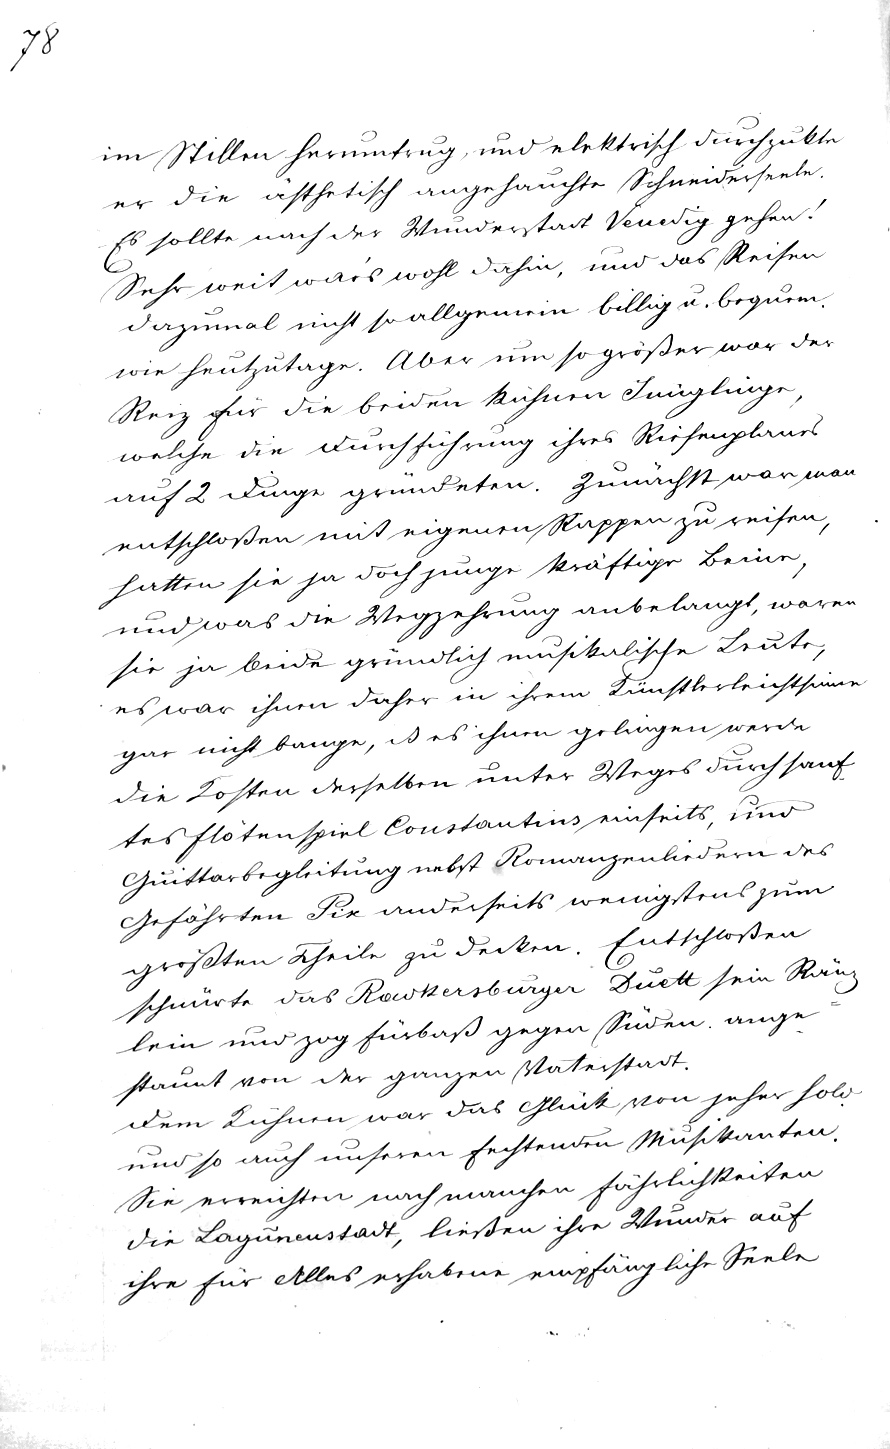 78
im Stillen herumtrug, und elektrisch durchzukte
er die ästhetisch angehauchte Schneiderseele.
Es sollte nach der Wunderstadt Venedig gehen!
Sehr weit war's wohl dahin, und das Reisen
dazumal nicht so allgemein billig u. bequem.
wie heutzutage. Aber um so größer war der
Reiz für die beiden kühnen Jünglinge,
welche die Durchführung ihres Riesenplanes
auf 2 Dinge gründeten. Zunächst war man
entschloßen mit eigenen Rappen zu reisen,
hatten sie ja doch junge kräftige Beine,
und was die Wegzehrung anbelangt, waren
sie ja beide gründlich musikalische Leute,
es war ihnen daher in ihrem Künstlerleichtsinne
gar nicht bange, dß es ihnen gelingen werde
die Kosten derselben unter Weges durch sanf
tes Flötenspiel Constantins einseits, und
Guittarbegleitung nebst Romanzenliedern des
Gefährten Pix anderseits wenigstens zum
großten Theile zu decken. Entschloßen
schnürte das Radkersburger Duett sein Ränz
lein und zog fürbaß gegen Süden. ange=
staunt von der ganzen Vaterstadt.
Dem Kühnen war das Glück von jeher hold
und so auch unseren fechtenden Musikanten.
Sie erreichten nach manchen Fährlichkeiten
die Lagunenstadt, ließen ihre Wunder auf
ihre für Alles erhabene empfängliche Seele